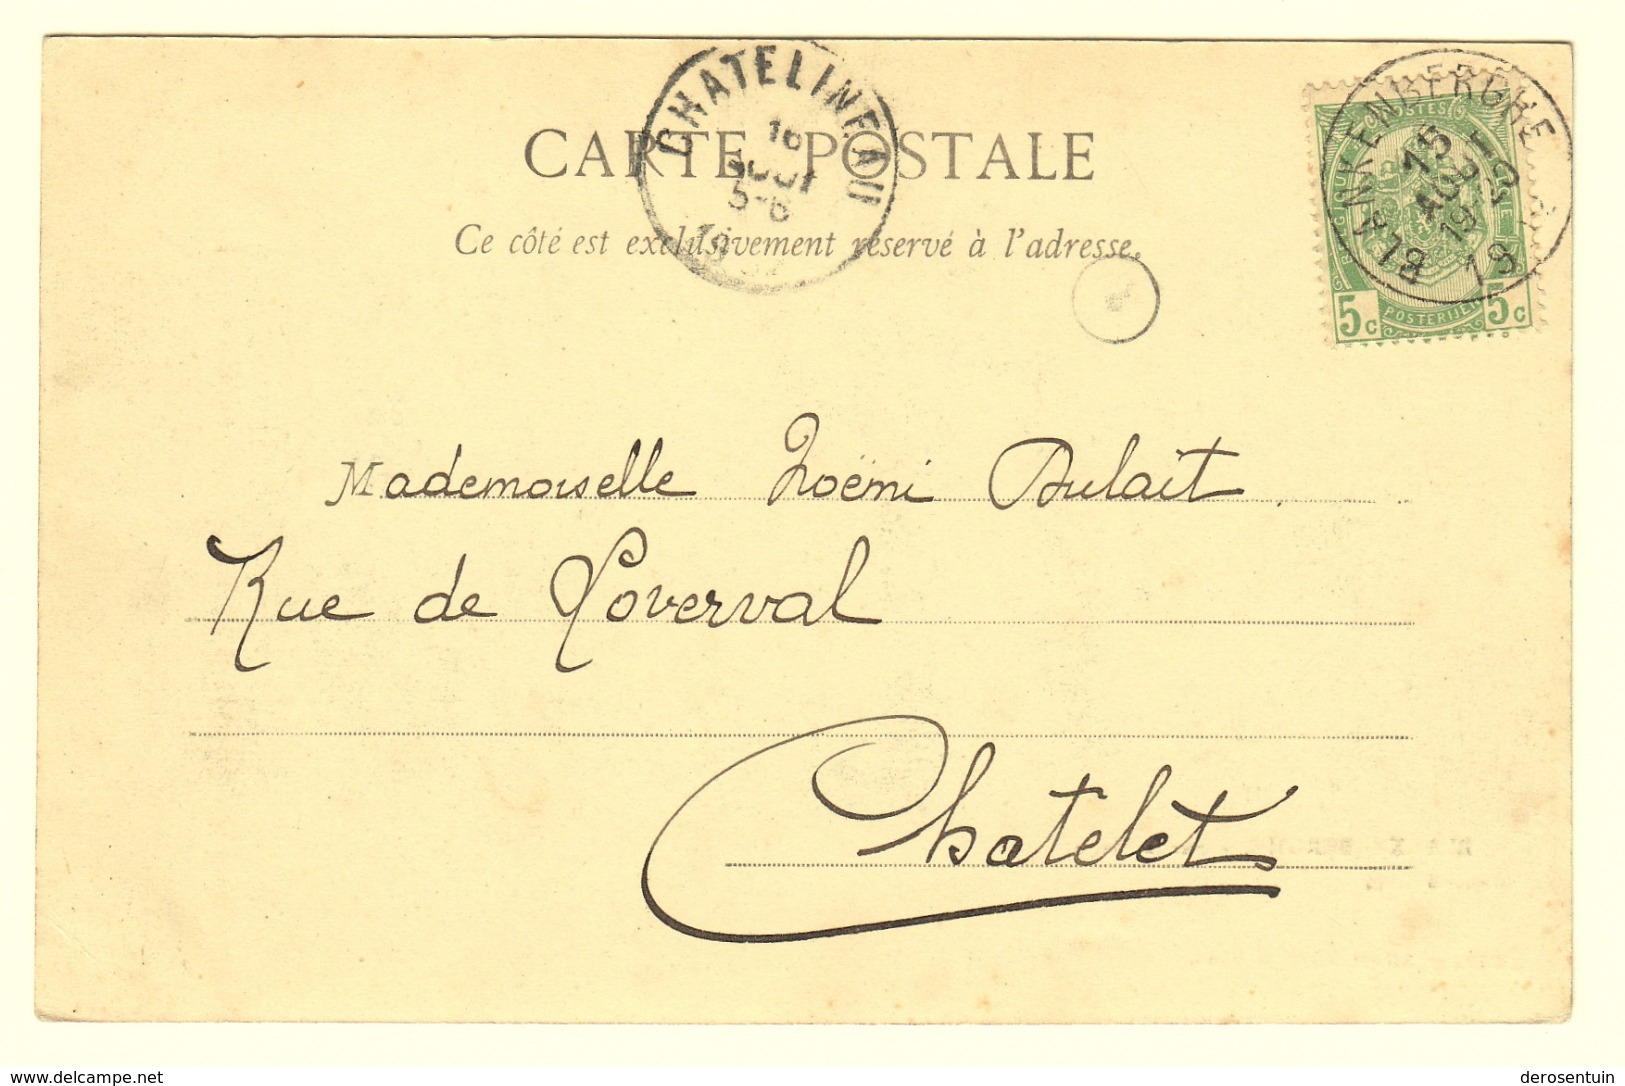 CHATELINEAU
16
AOUT
5-6
CARTE POSTALE
Ce côté est exclusivement réservé à l'adresse.
BLANKENBERGHE
15
19
POSTERIJEN
5c 5c
Mademoiselle Noëmi Dulait
Rue de Loverval
Chatelet
delcampe.net
derosentuin